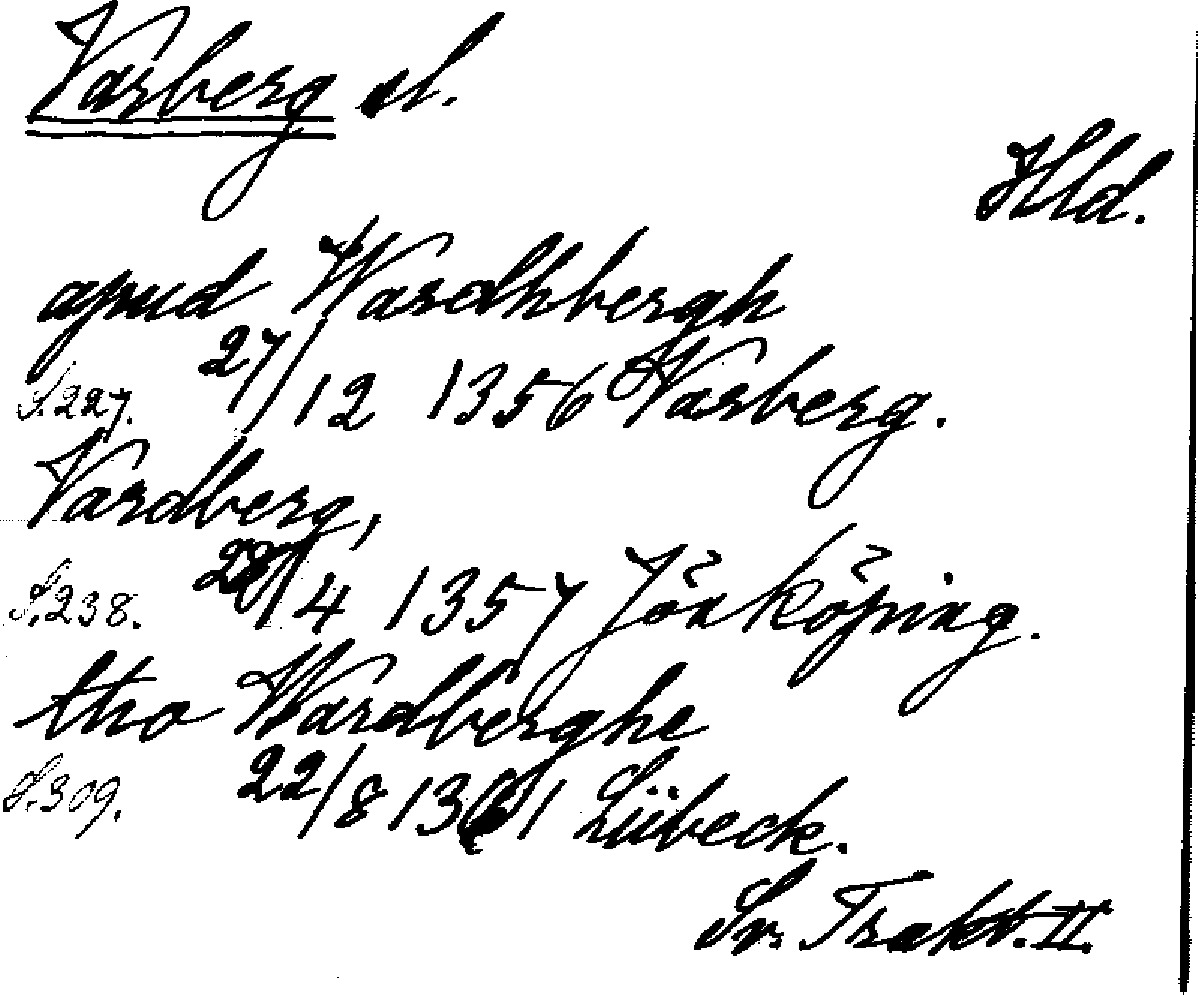 Varberg sl.
Hld.
apud Wardhbergh
S.227. 27/12 1356 Varberg.
Vardberg,
S.238. 28/4 1357 Jönköping.
tho Wardberghe
S.309. 22/8 1361 Lübeck.
Sv. Trakt. II.